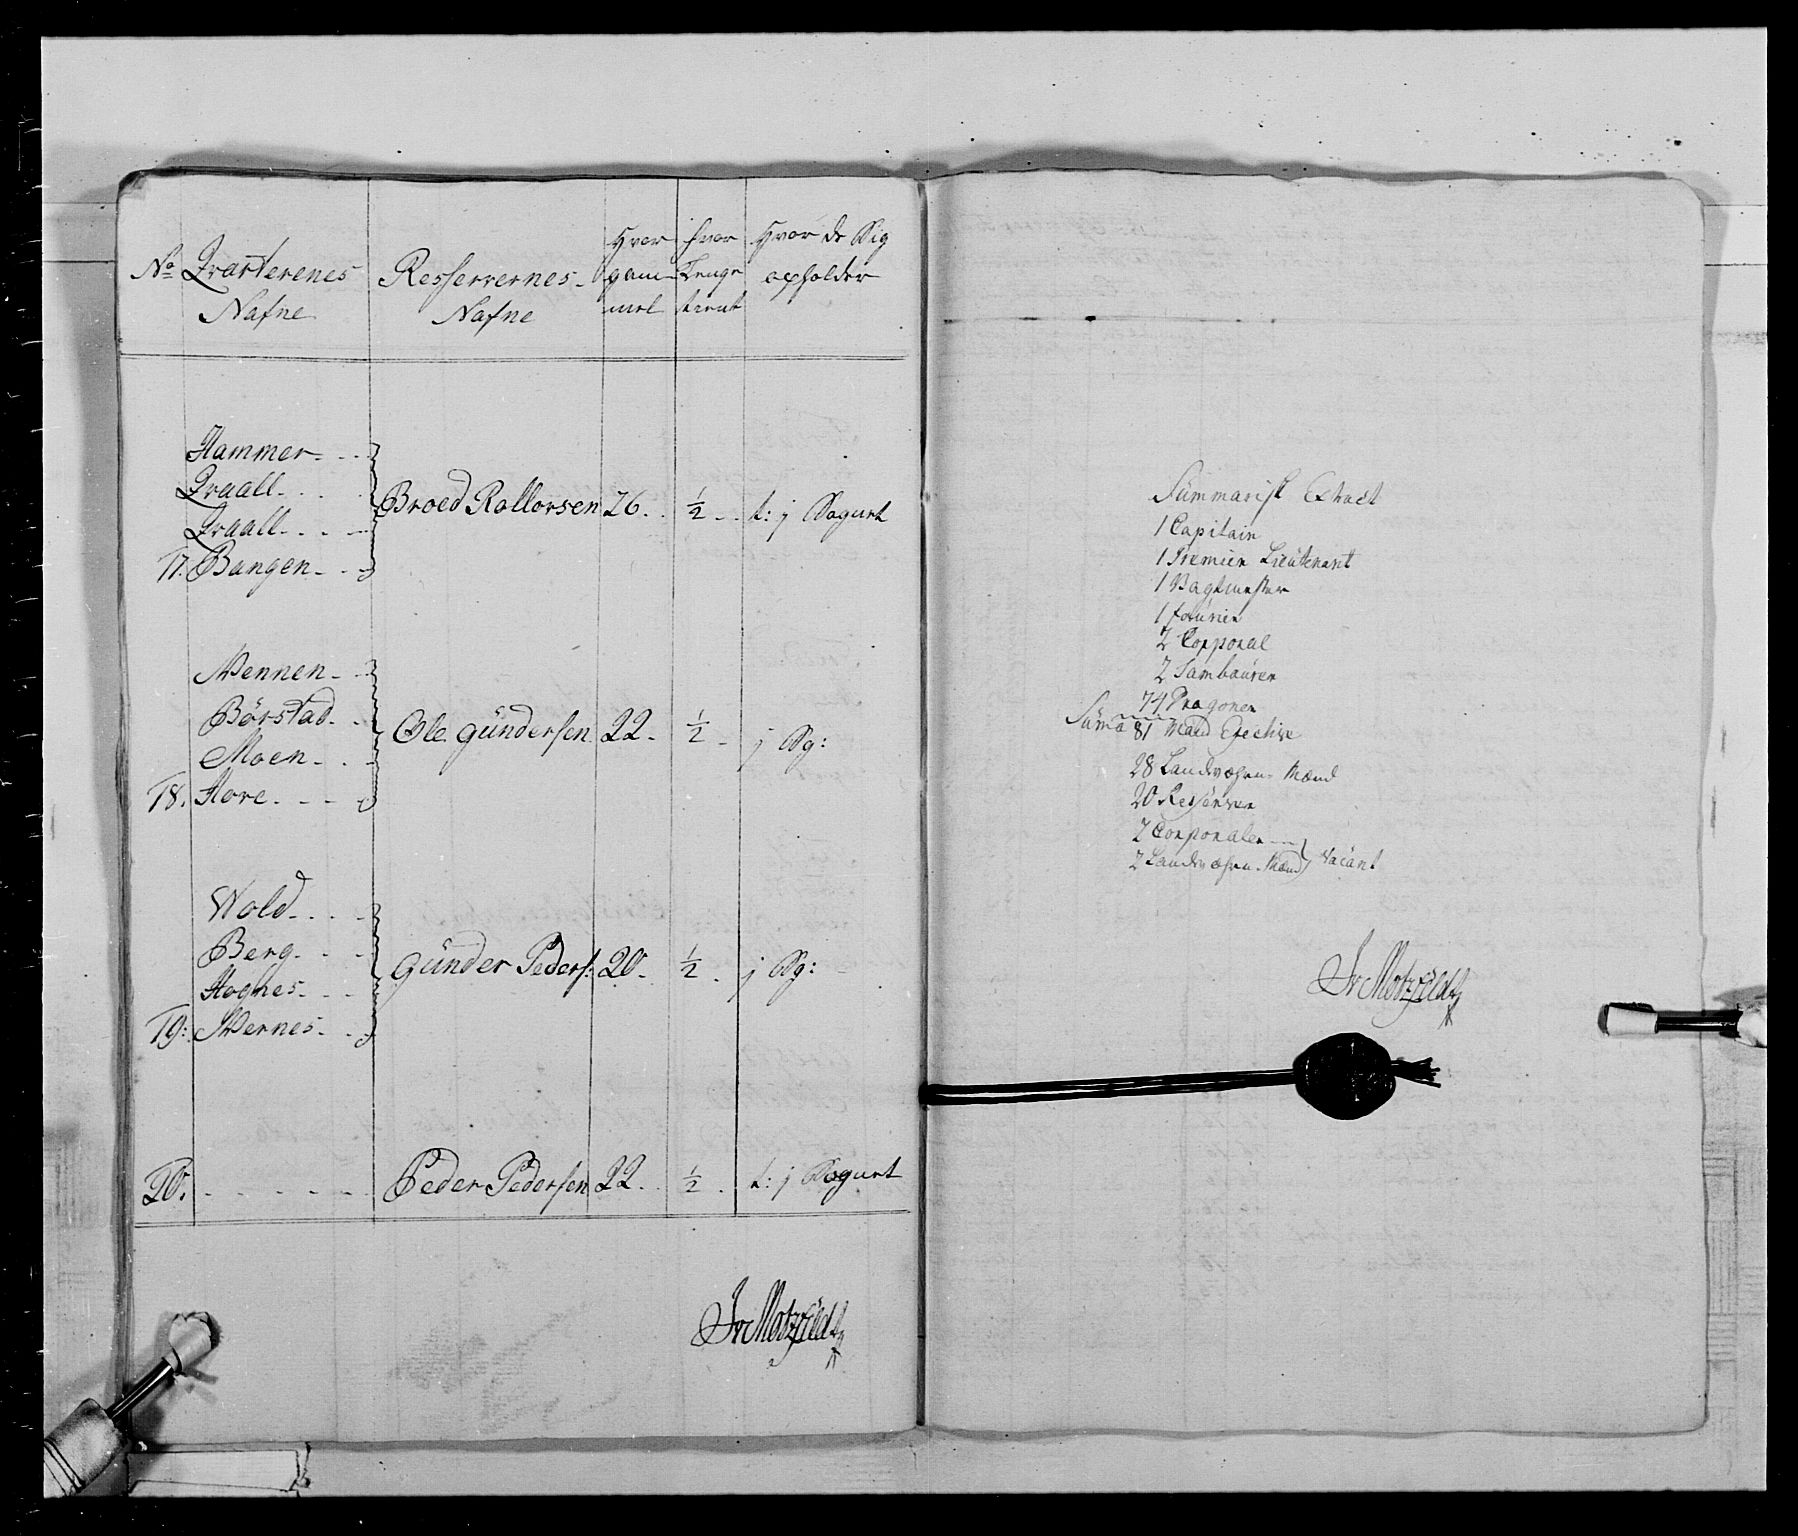 No Qvarterenes Nafne
Resservernes Nafne
Hvor gam mel
hvor Lenge tient
Hvor de Sig opholder
Hammer
Qvaall
Qvaall
17. Bangen
Broed Rollorsen 26. ½ t: j Sogurt
Wennen
Börstad
Moen
18. Hove
Ole Gündersen 22. ½ j Sg:
Wold
Berg
Hognes
19: Wernes
Günder Peders: 20. ½ j Sg:
20. Peder Pedersen 22. ½ t: j Sogurt
Jv Motzfeldt
Sümmarisk Extract
1 Capitain
1 Premier Lieutenant
1 Vagtmester
1 fourier
2 Copporal
2 Tambourer
74 Dragoner
Süma 81 Mand Efective
28 Landværn Mænd
20 Resserver
2 Corporaler
2 Landværn Mænd Vacant
Jv Motzfeldt